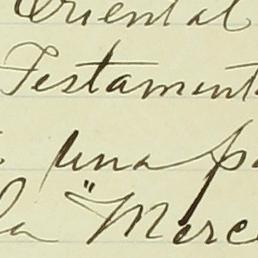 Oriental
Testament
una pa
la "Merce